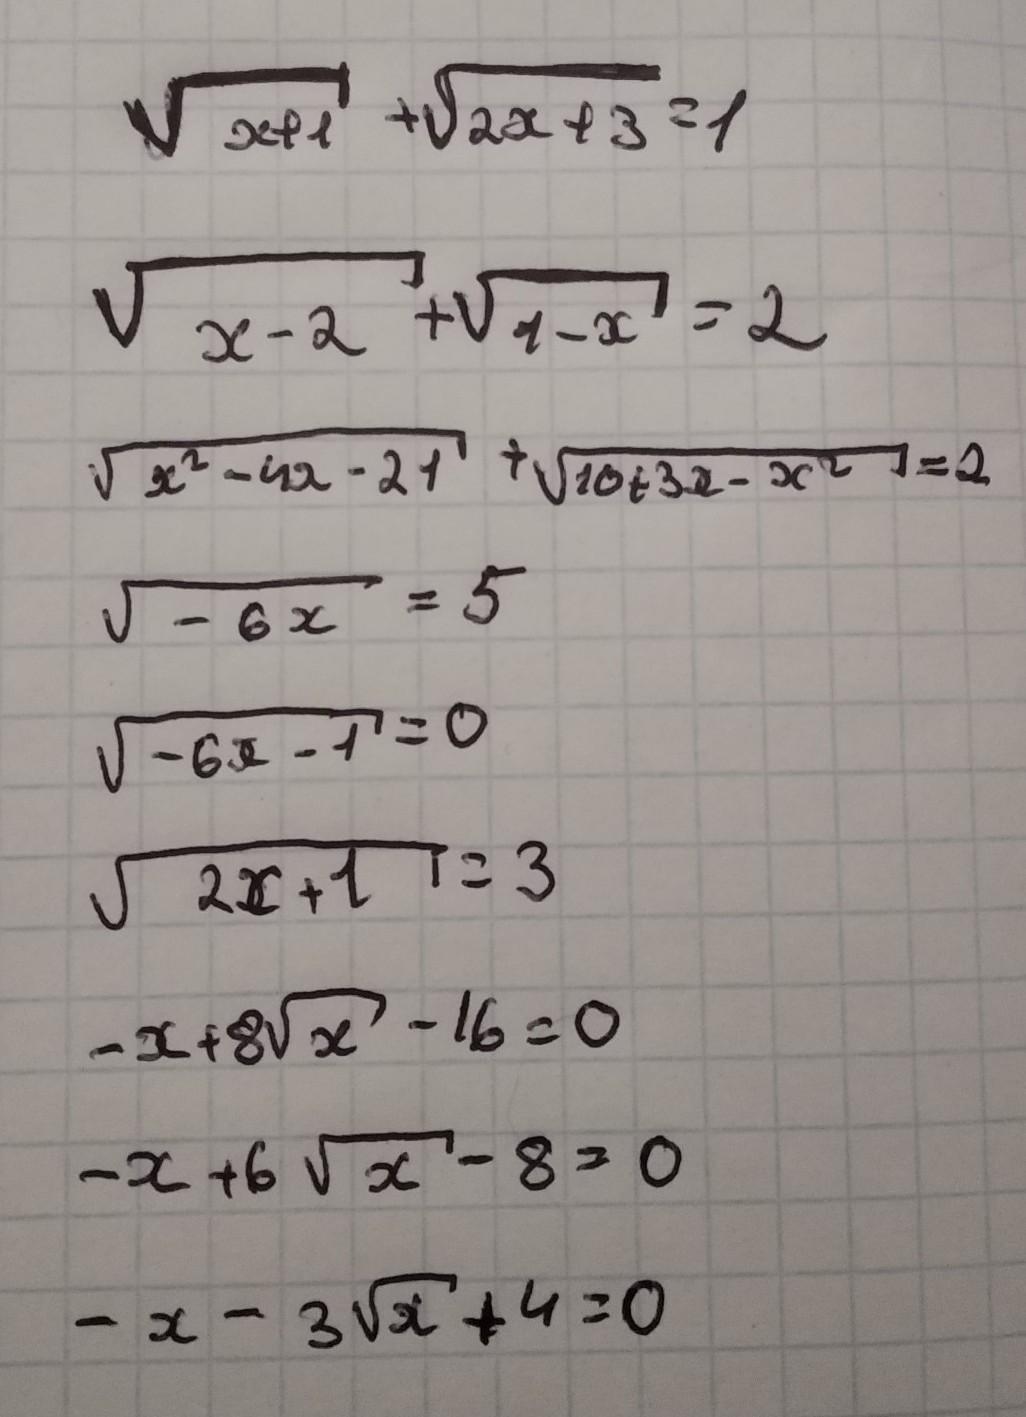 √(x+1) + √(2x+3) = 1
√(x-2) + √(1-x) = 2
√(x² - 4x - 21) + √(10+3x-x²) = 2
√(-6x) = 5
√(-6x-1) = 0
√(2x+1) = 3
-x+8√x - 16 = 0
-x+6√x - 8 = 0
-x - 3√x + 4 = 0